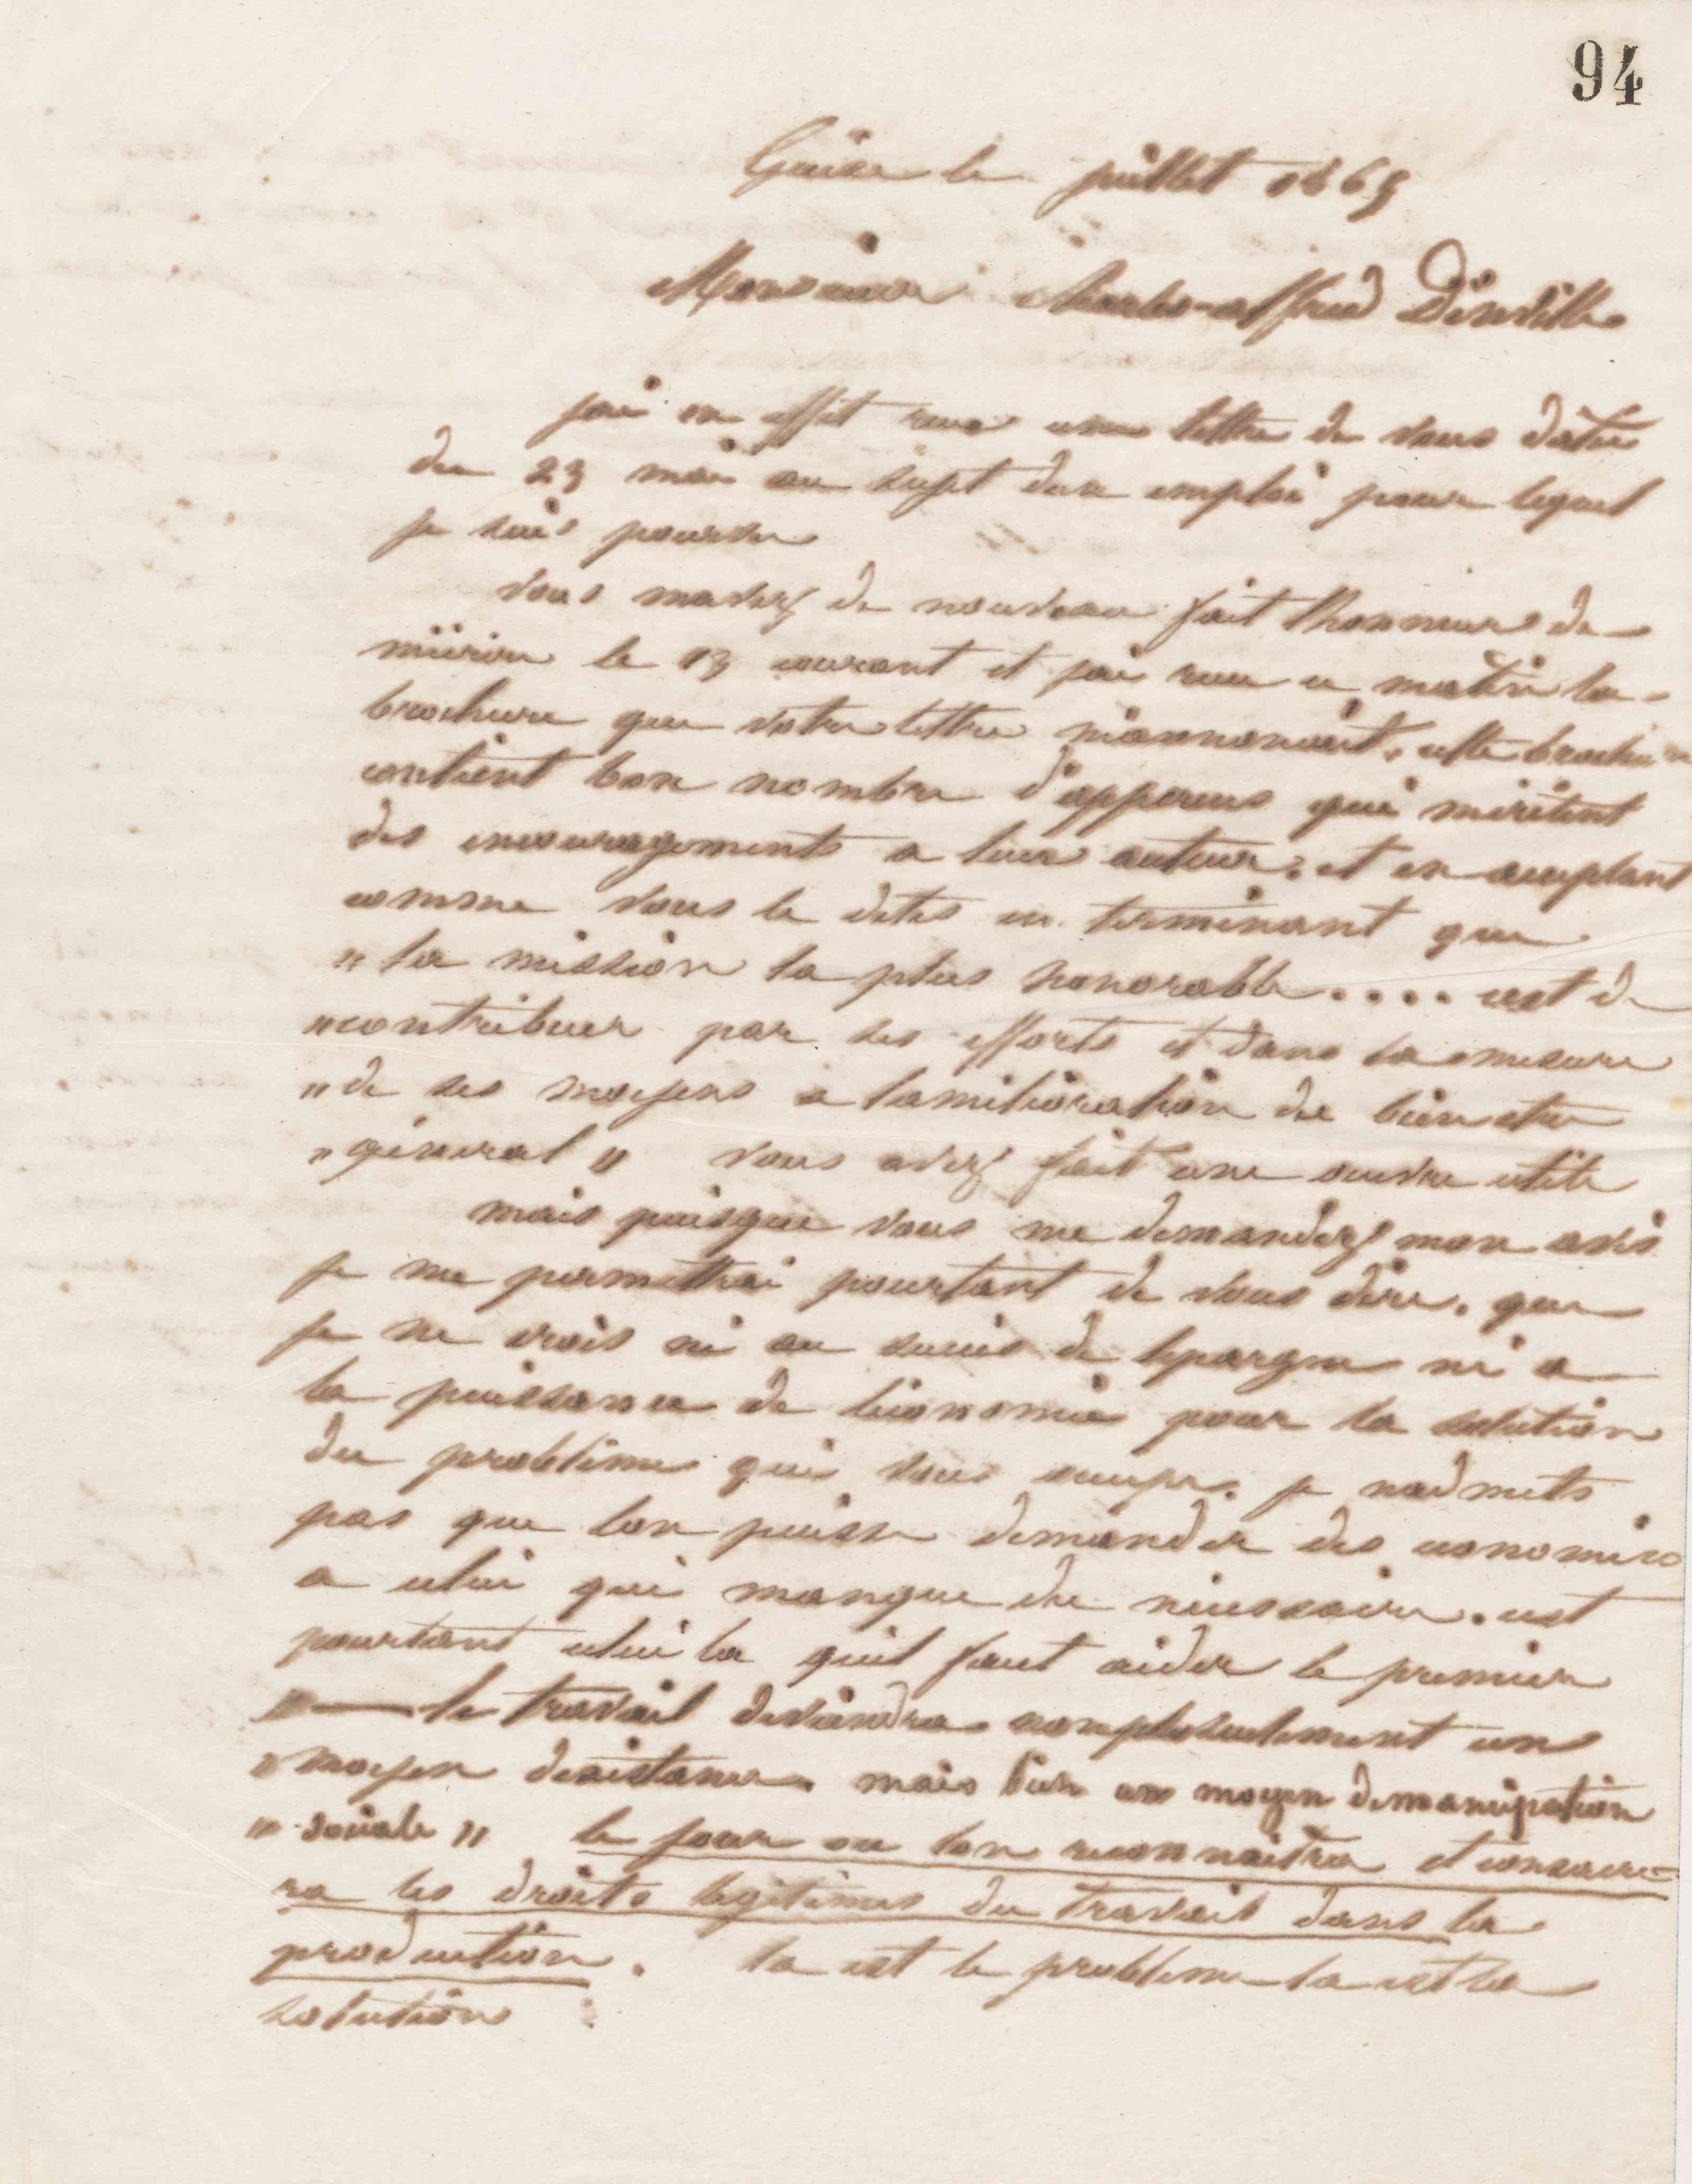 94
Guise le juillet 1865
Monsieur Charles-alfred
jai en effet recu une lettre de vous datée
du 23 mai au sujet dun emploi pour lequel
je suis pourvu
vous mavez de nouveau fait lhonneur de
mécrire le 13 courant et jai recu ce matin la
brochure que votre lettre m'annoncait. cette brochure
contient bon nombre d'appercus qui méritent
des encouragements a leur auteur. et en acceptant
comme vous le dites en terminant que
" la mission la plus honorable .... cest de
" contribuer par ses efforts et dans la mesure
" de ses moyens a lamélioration du bien etre
" général " vous avez fait une oeuvre utile
mais puisque vous me demandez mon avis
je me permettrai pourtant de vous dire. que
je ne crois ni au succès de lepargne ni a
la puissance de léconomie pour la solution
du problème qui vous occupe. je nadmets
pas que lon puisse demander des economies
a celui qui manque du nécessaire. cest
pourtant celui la quil faut aider le premier
" — le travail deviendra non plus seulement un
" moyen dexistance. mais bien un moyen démancipation
" sociale " le jour ou lon reconnaitra et consacre-
ra les droits legitimes du travail dans la
production. la est le problème la est la
solution